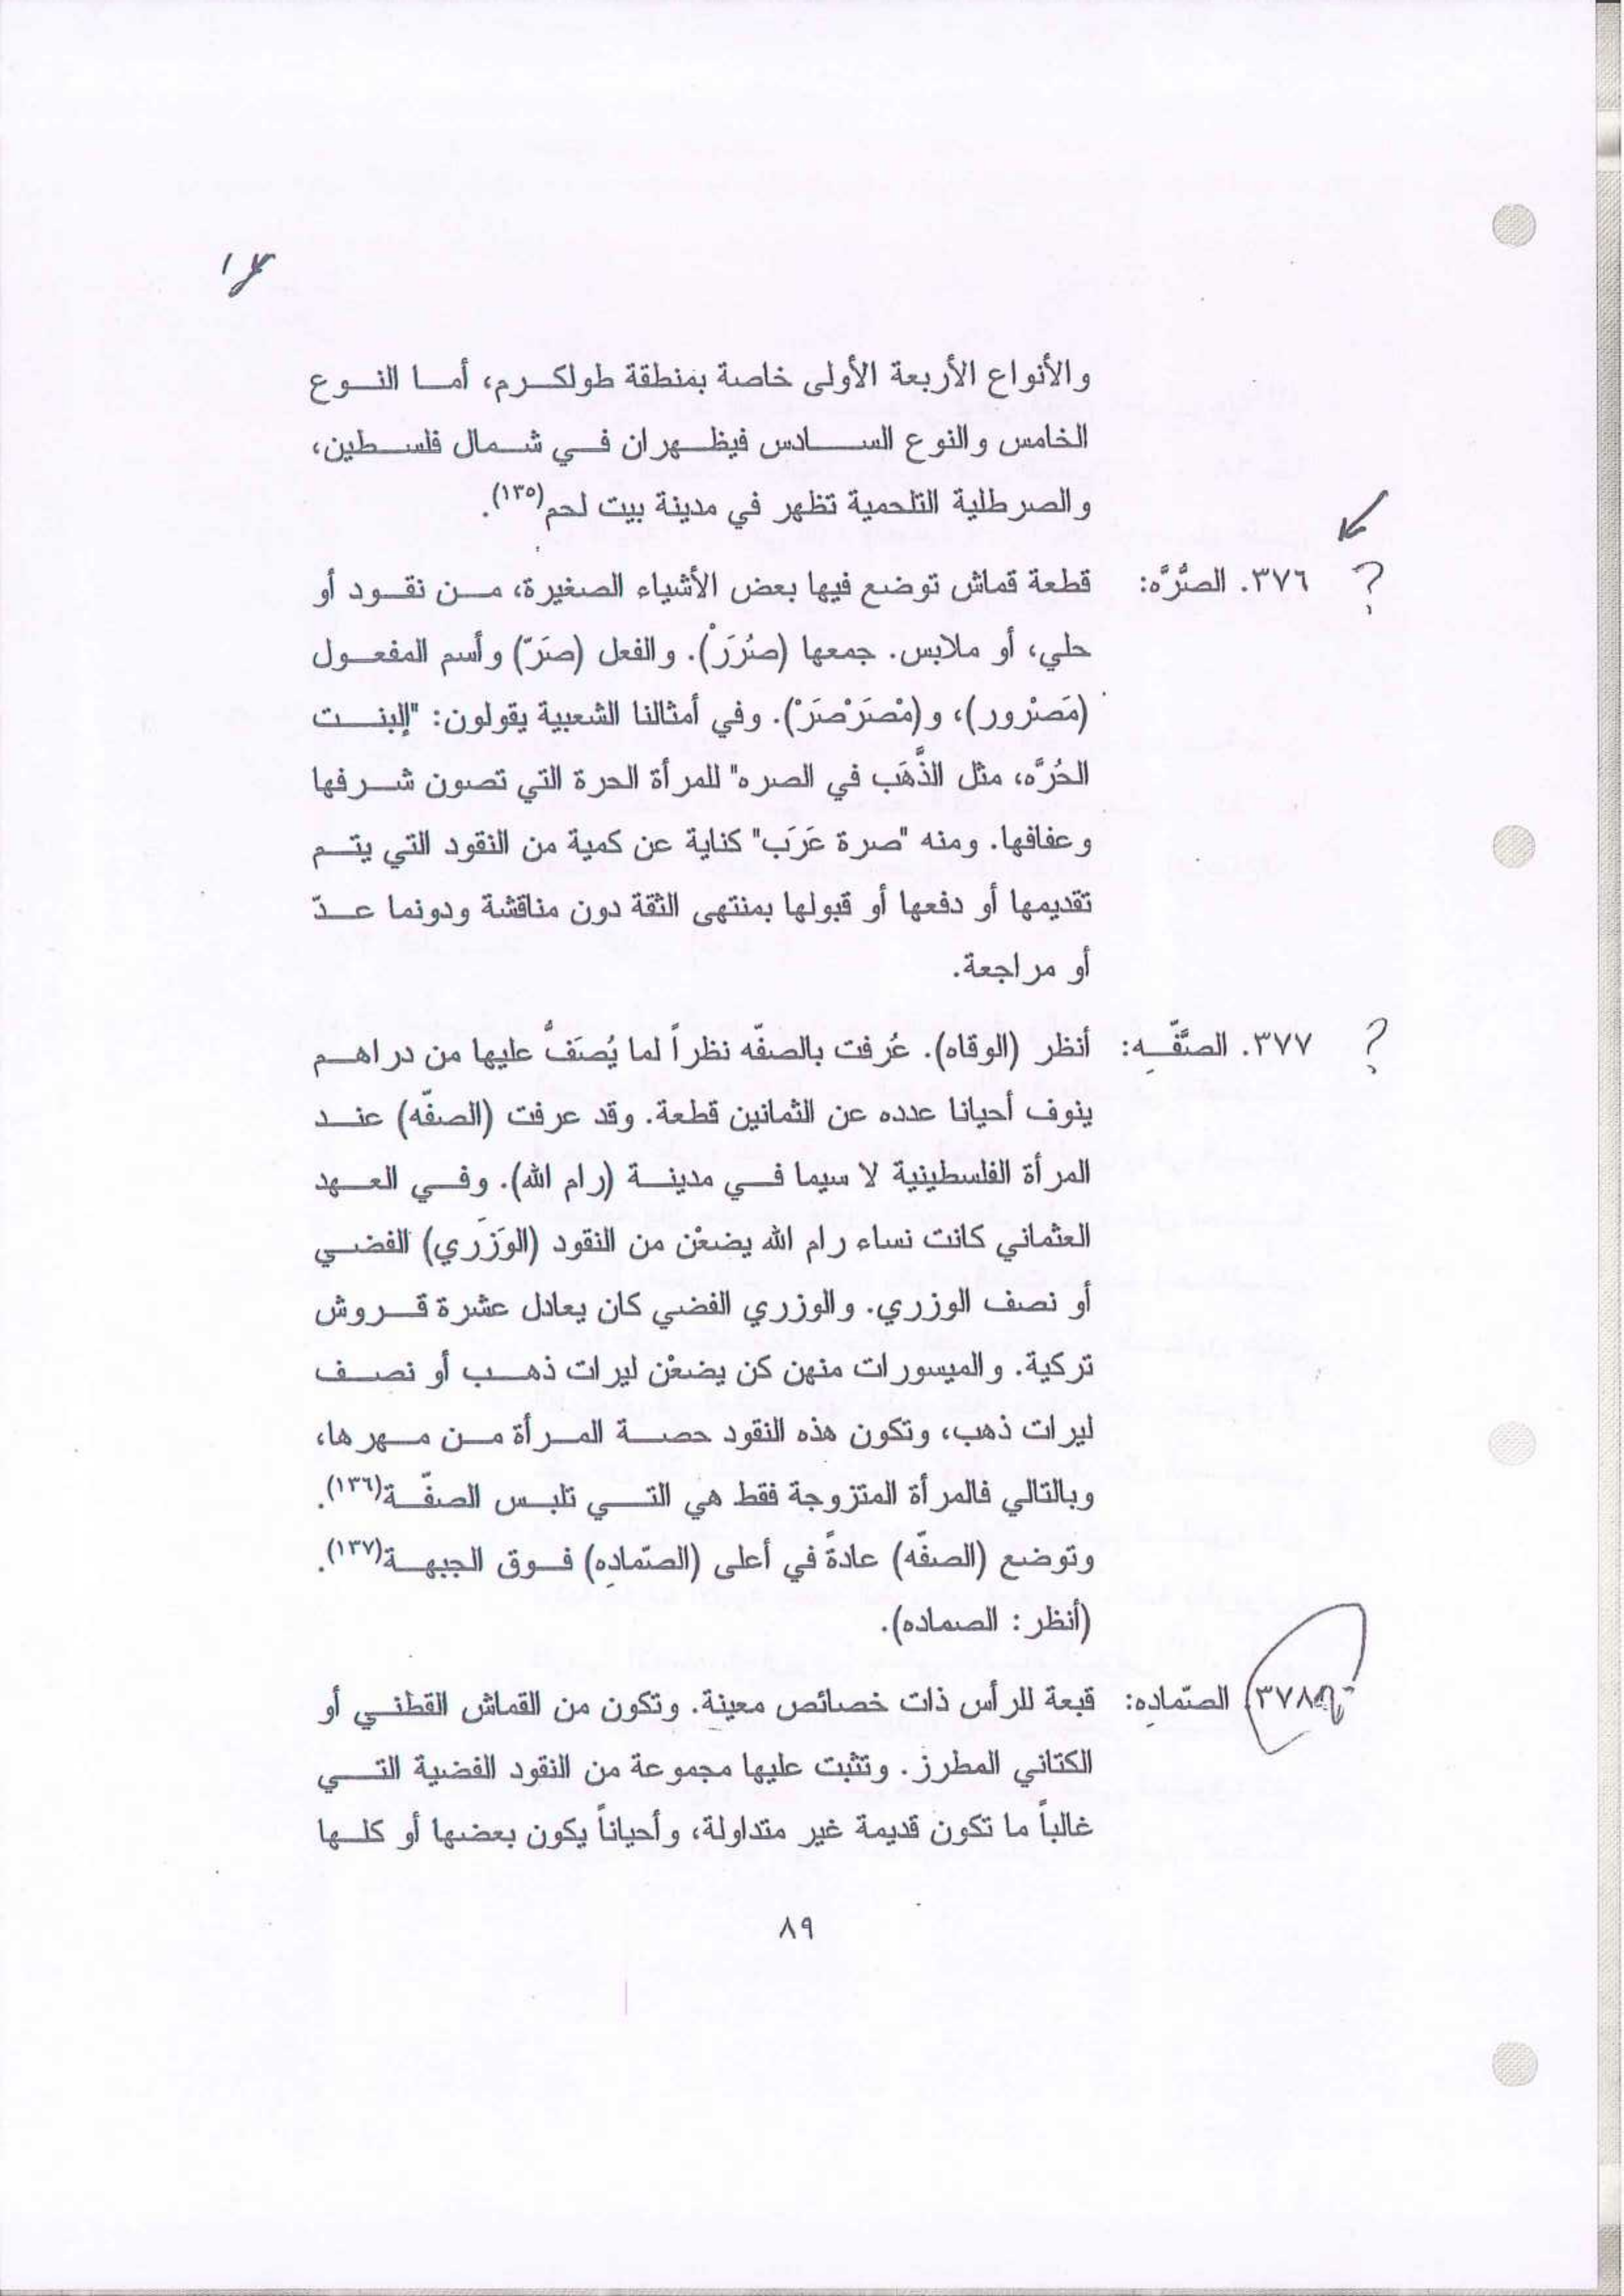 والأنواع الأربعة الأولى خاصة بمنطقة طولكرم، أما النوع
الخامس والنوع السادس فيظهران في شمال فلسطين،
والصرطلية التلحمية تظهر في مدينة بيت لحم(١٣٥).
؟ ٣٧٦. الصُّرَّه: قطعة قماش توضع فيها بعض الأشياء الصغيرة، من نقود أو
حلي، أو ملابس. جمعها (صُرَرْ). والفعل (صَرّ) وأسم المفعول
(مَصْرور)، و(مْصَرْصَرْ). وفي أمثالنا الشعبية يقولون: "إلبنت
الحُرَّه، مثل الذَّهَب في الصره" للمرأة الحرة التي تصون شرفها
وعفافها. ومنه "صرة عَرَب" كناية عن كمية من النقود التي يتم
تقديمها أو دفعها أو قبولها بمنتهى الثقة دون مناقشة ودونما عدّ
أو مراجعة.
؟ ٣٧٧. الصَّفِّه: أنظر (الوقاه). عُرفت بالصفّه نظراً لما يُصَفُّ عليها من دراهم
ينوف أحيانا عدده عن الثمانين قطعة. وقد عرفت (الصفّه) عند
المرأة الفلسطينية لا سيما في مدينة (رام الله). وفي العهد
العثماني كانت نساء رام الله يضعْن من النقود (الوَزَري) الفضي
أو نصف الوزري. والوزري الفضي كان يعادل عشرة قروش
تركية. والميسورات منهن كن يضعْن ليرات ذهب أو نصف
ليرات ذهب، وتكون هذه النقود حصة المرأة من مهرها،
وبالتالي فالمرأة المتزوجة فقط هي التي تلبس الصفّة(١٣٦).
وتوضع (الصفّه) عادةً في أعلى (الصّمادِه) فوق الجبهة(١٣٧).
(أنظر: الصماده).
٣٧٨. الصّمادِه: قبعة للرأس ذات خصائص معينة. وتكون من القماش القطني أو
الكتاني المطرز. وتثبت عليها مجموعة من النقود الفضية التي
غالباً ما تكون قديمة غير متداولة، وأحياناً يكون بعضها أو كلها
٨٩